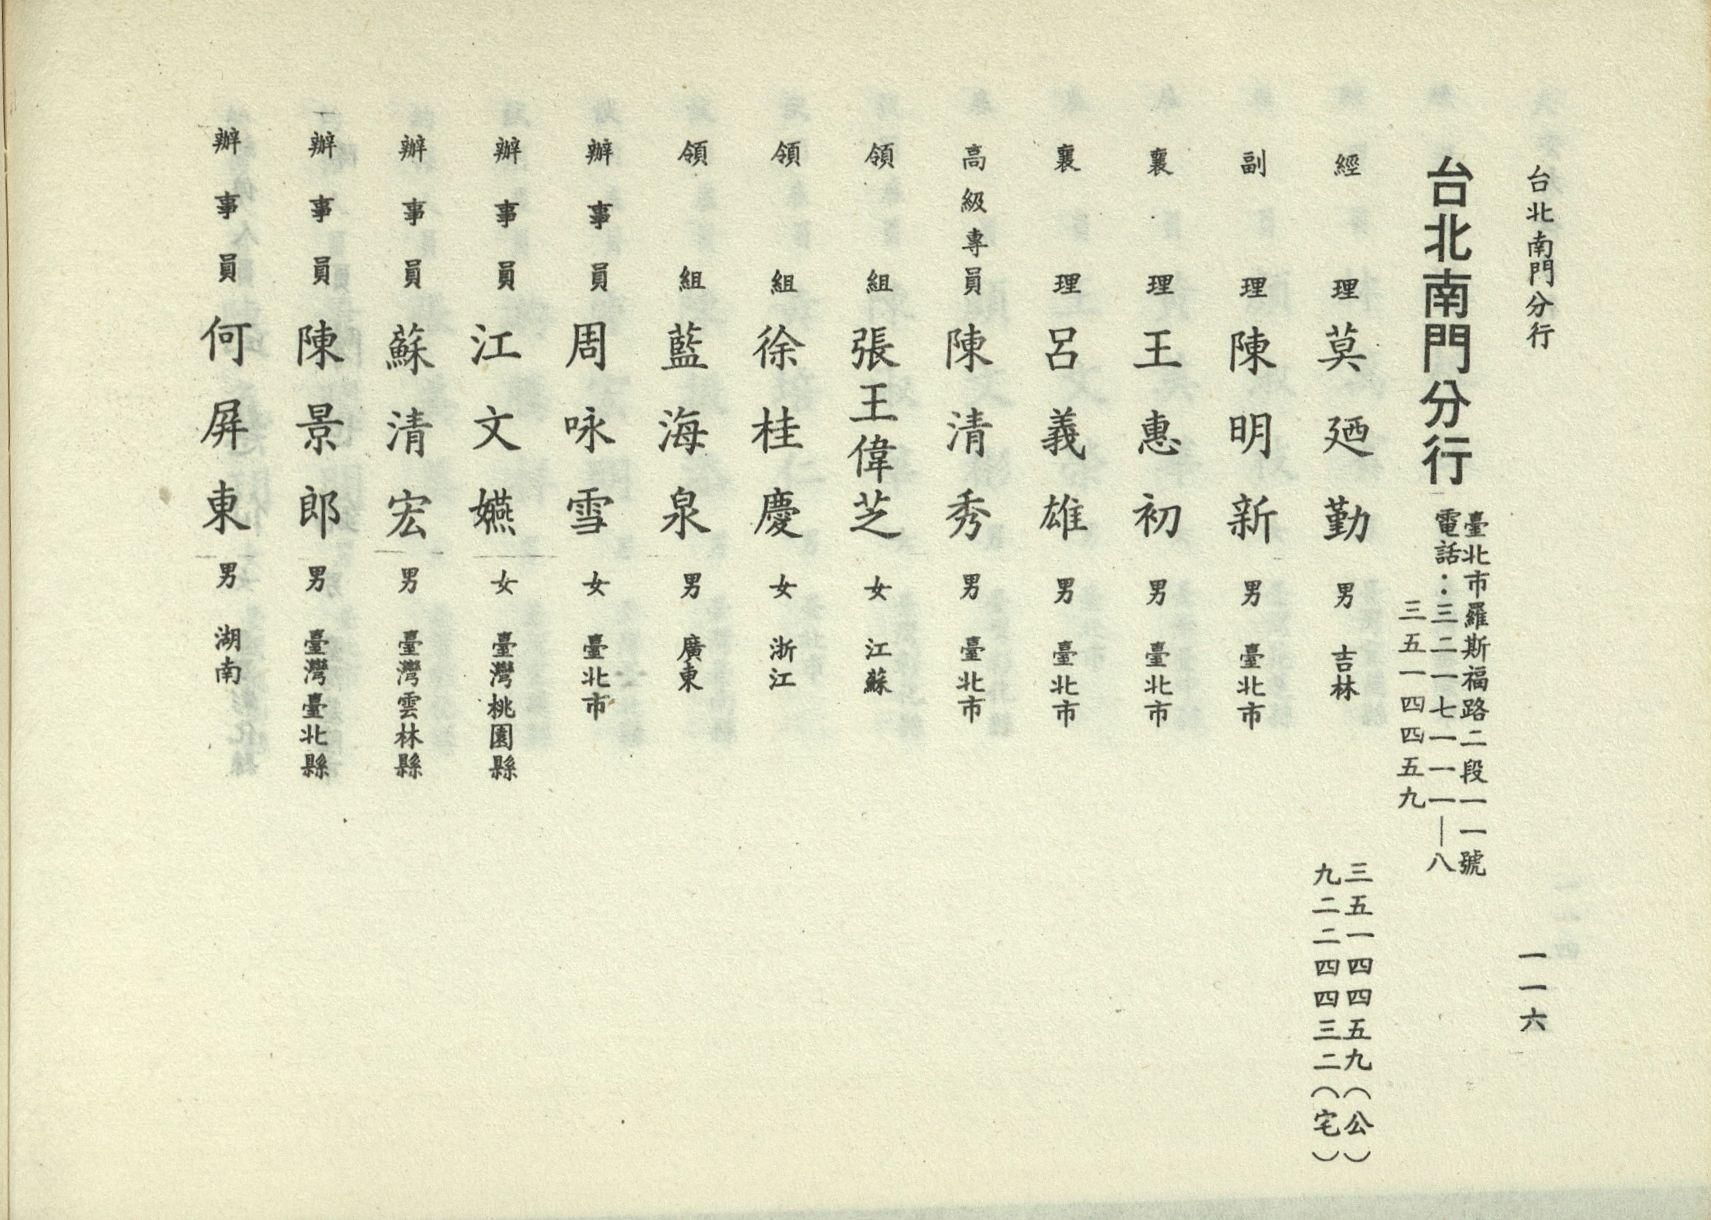 台北南門分行
一一六
台北南門分行
臺北市羅斯福路二段一一號
電話：三二一七一一一—八
三五一四四五九
經理 莫廼勤 男 吉林 三五一四四五九（公）
九二二四四三二（宅）
副理 陳明新 男 臺北市
襄理 王惠初 男 臺北市
襄理 呂義雄 男 臺北市
高級專員 陳清秀 男 臺北市
領組 張王偉芝 女 江蘇
領組 徐桂慶 女 浙江
領組 藍海泉 男 廣東
辦事員 周咏雪 女 臺北市
辦事員 江文嬿 女 臺灣桃園縣
辦事員 蘇清宏 男 臺灣雲林縣
辦事員 陳景郎 男 臺灣臺北縣
辦事員 何屏東 男 湖南